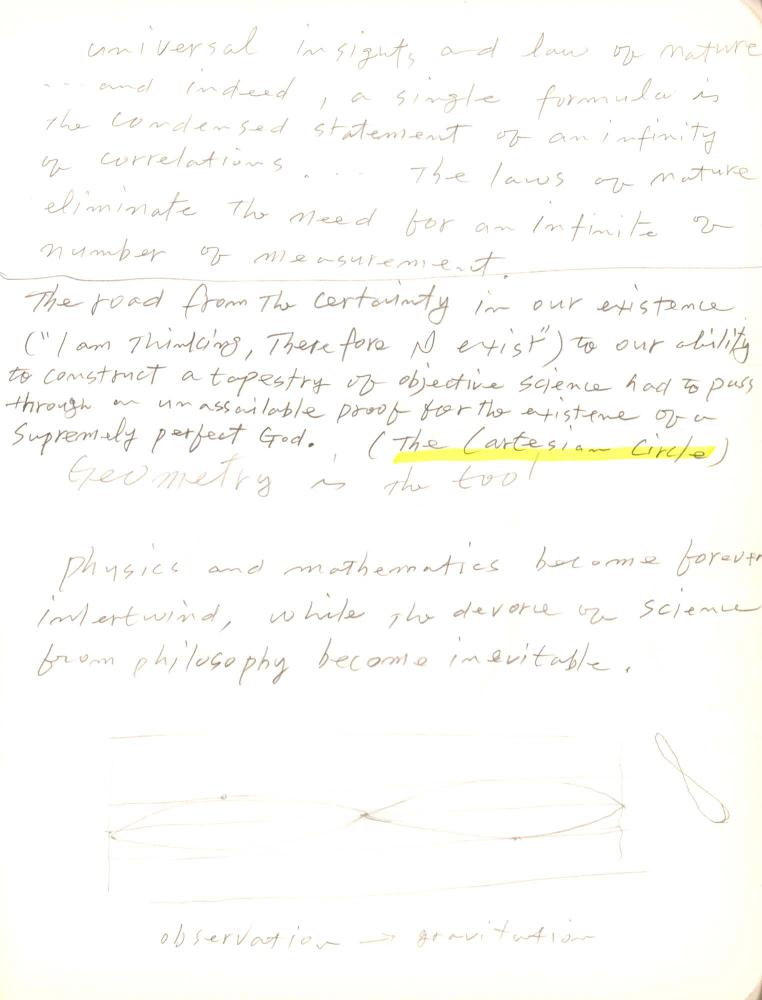 universal insights and law of nature
... and indeed, a single formula is
the condensed statement of an infinity
of correlations .... The laws of nature
eliminate the need for an infinite
number of measurement.
The road from The certainty in our existence
("I am Thinking, Therefore I exist") to our ability
to construct a tapestry of objective science had to pass
through an unassailable proof for the existene of a
Supremely perfect God. (The Cartesian Circle)
Geometry is the tool
physics and mathematics become forever
intertwind, while the devorce of science
from philosophy become inevitable.
observation → gravitation